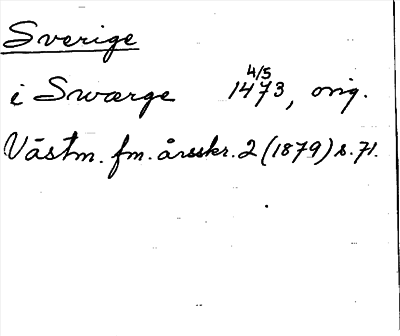 Sverige
i Swærge 4/5 1473, orig.
Västm. fm. årsskr. 2 (1879) s. 71.